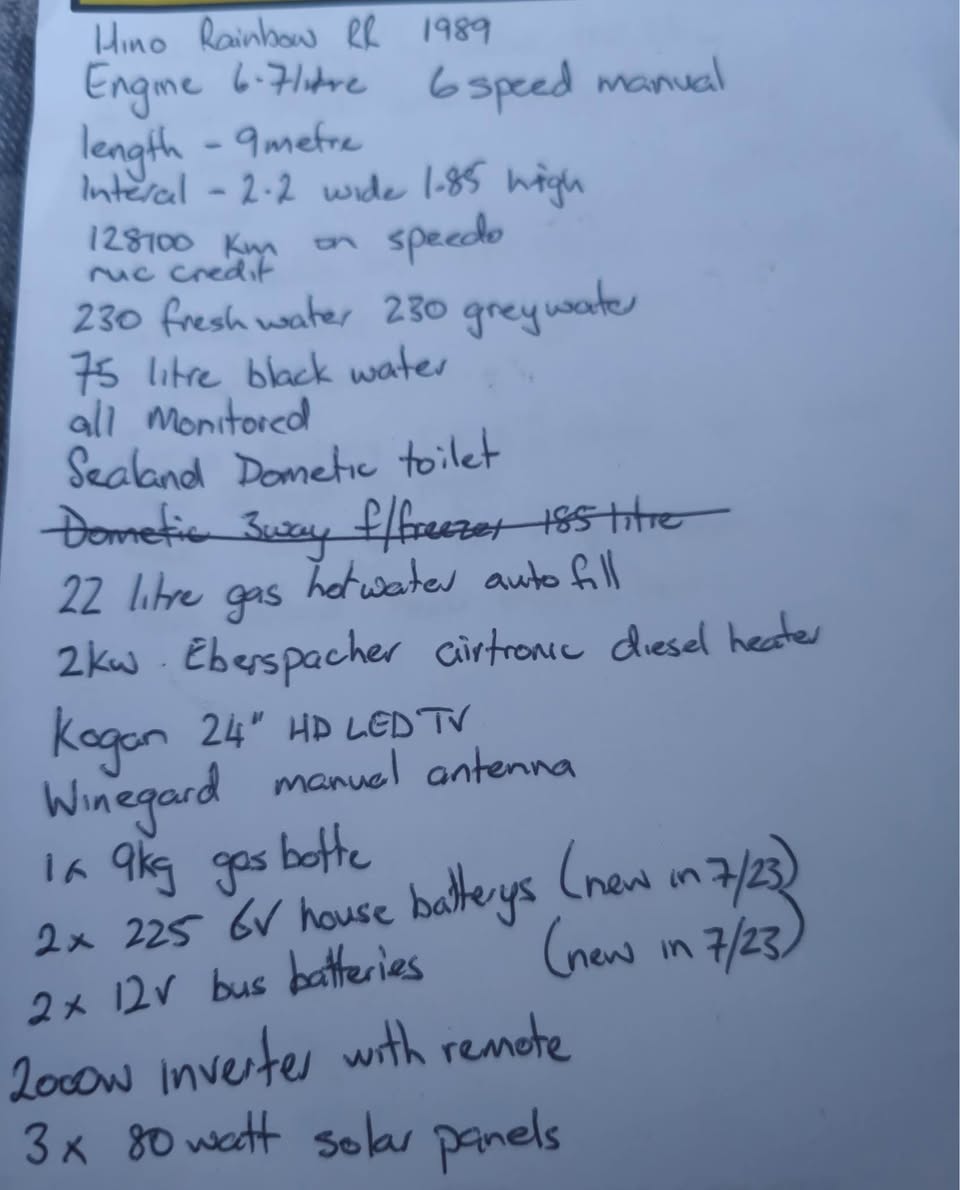 Hino Rainbow RR 1989
Engine 6.7litre 6 speed manual
length - 9metre
Interal - 2.2 wide 1.85 high
128700 Km on speedo
ruc credit
230 fresh water 230 grey water
75 litre black water
all Monitored
Sealand Dometic toilet
Dometic 3way f/freezer 185 litre
22 litre gas hotwater auto fill
2kw. Eberspacher airtronic diesel heater
Kogan 24" HD LED TV
Winegard manuel antenna
1x 9kg gas botte
2x 225 6V house batterys (new in 7/23)
2x 12V bus batteries (new in 7/23)
2000W inverter with remote
3x 80 watt solar panels